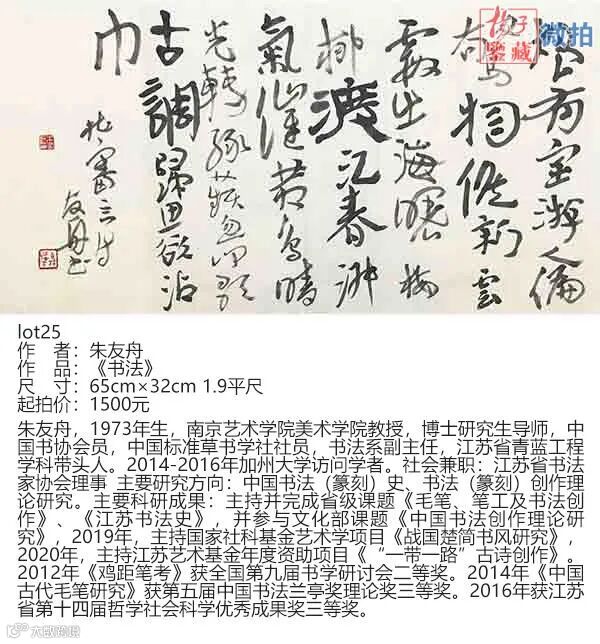 楊子
鑒藏
微拍
獨有宦游人偏
驚物候新雲
霞出海曙梅
柳渡江春淑
氣催黃鳥晴
光轉綠蘋忽聞歌
古調歸思欲沾
巾
杜審言詩
友舟书
lot25
作 者：朱友舟
作 品：《书法》
尺 寸：65cm×32cm 1.9平尺
起拍价：1500元
朱友舟，1973年生，南京艺术学院美术学院教授，博士研究生导师，中
国书协会员，中国标准草书学社社员，书法系副主任，江苏省青蓝工程
学科带头人。2014-2016年加州大学访问学者。社会兼职：江苏省书法
家协会理事 主要研究方向：中国书法（篆刻）史、书法（篆刻）创作理
论研究。主要科研成果：主持并完成省级课题《毛笔、笔工及书法创
作》、《江苏书法史》，并参与文化部课题《中国书法创作理论研
究》，2019年，主持国家社科基金艺术学项目《战国楚简书风研究》，
2020年，主持江苏艺术基金年度资助项目《“一带一路”古诗创作》。
2012年《鸡距笔考》获全国第九届书学研讨会二等奖。2014年《中国
古代毛笔研究》获第五届中国书法兰亭奖理论奖三等奖。2016年获江苏
省第十四届哲学社会科学优秀成果奖三等奖。
大欧跨境